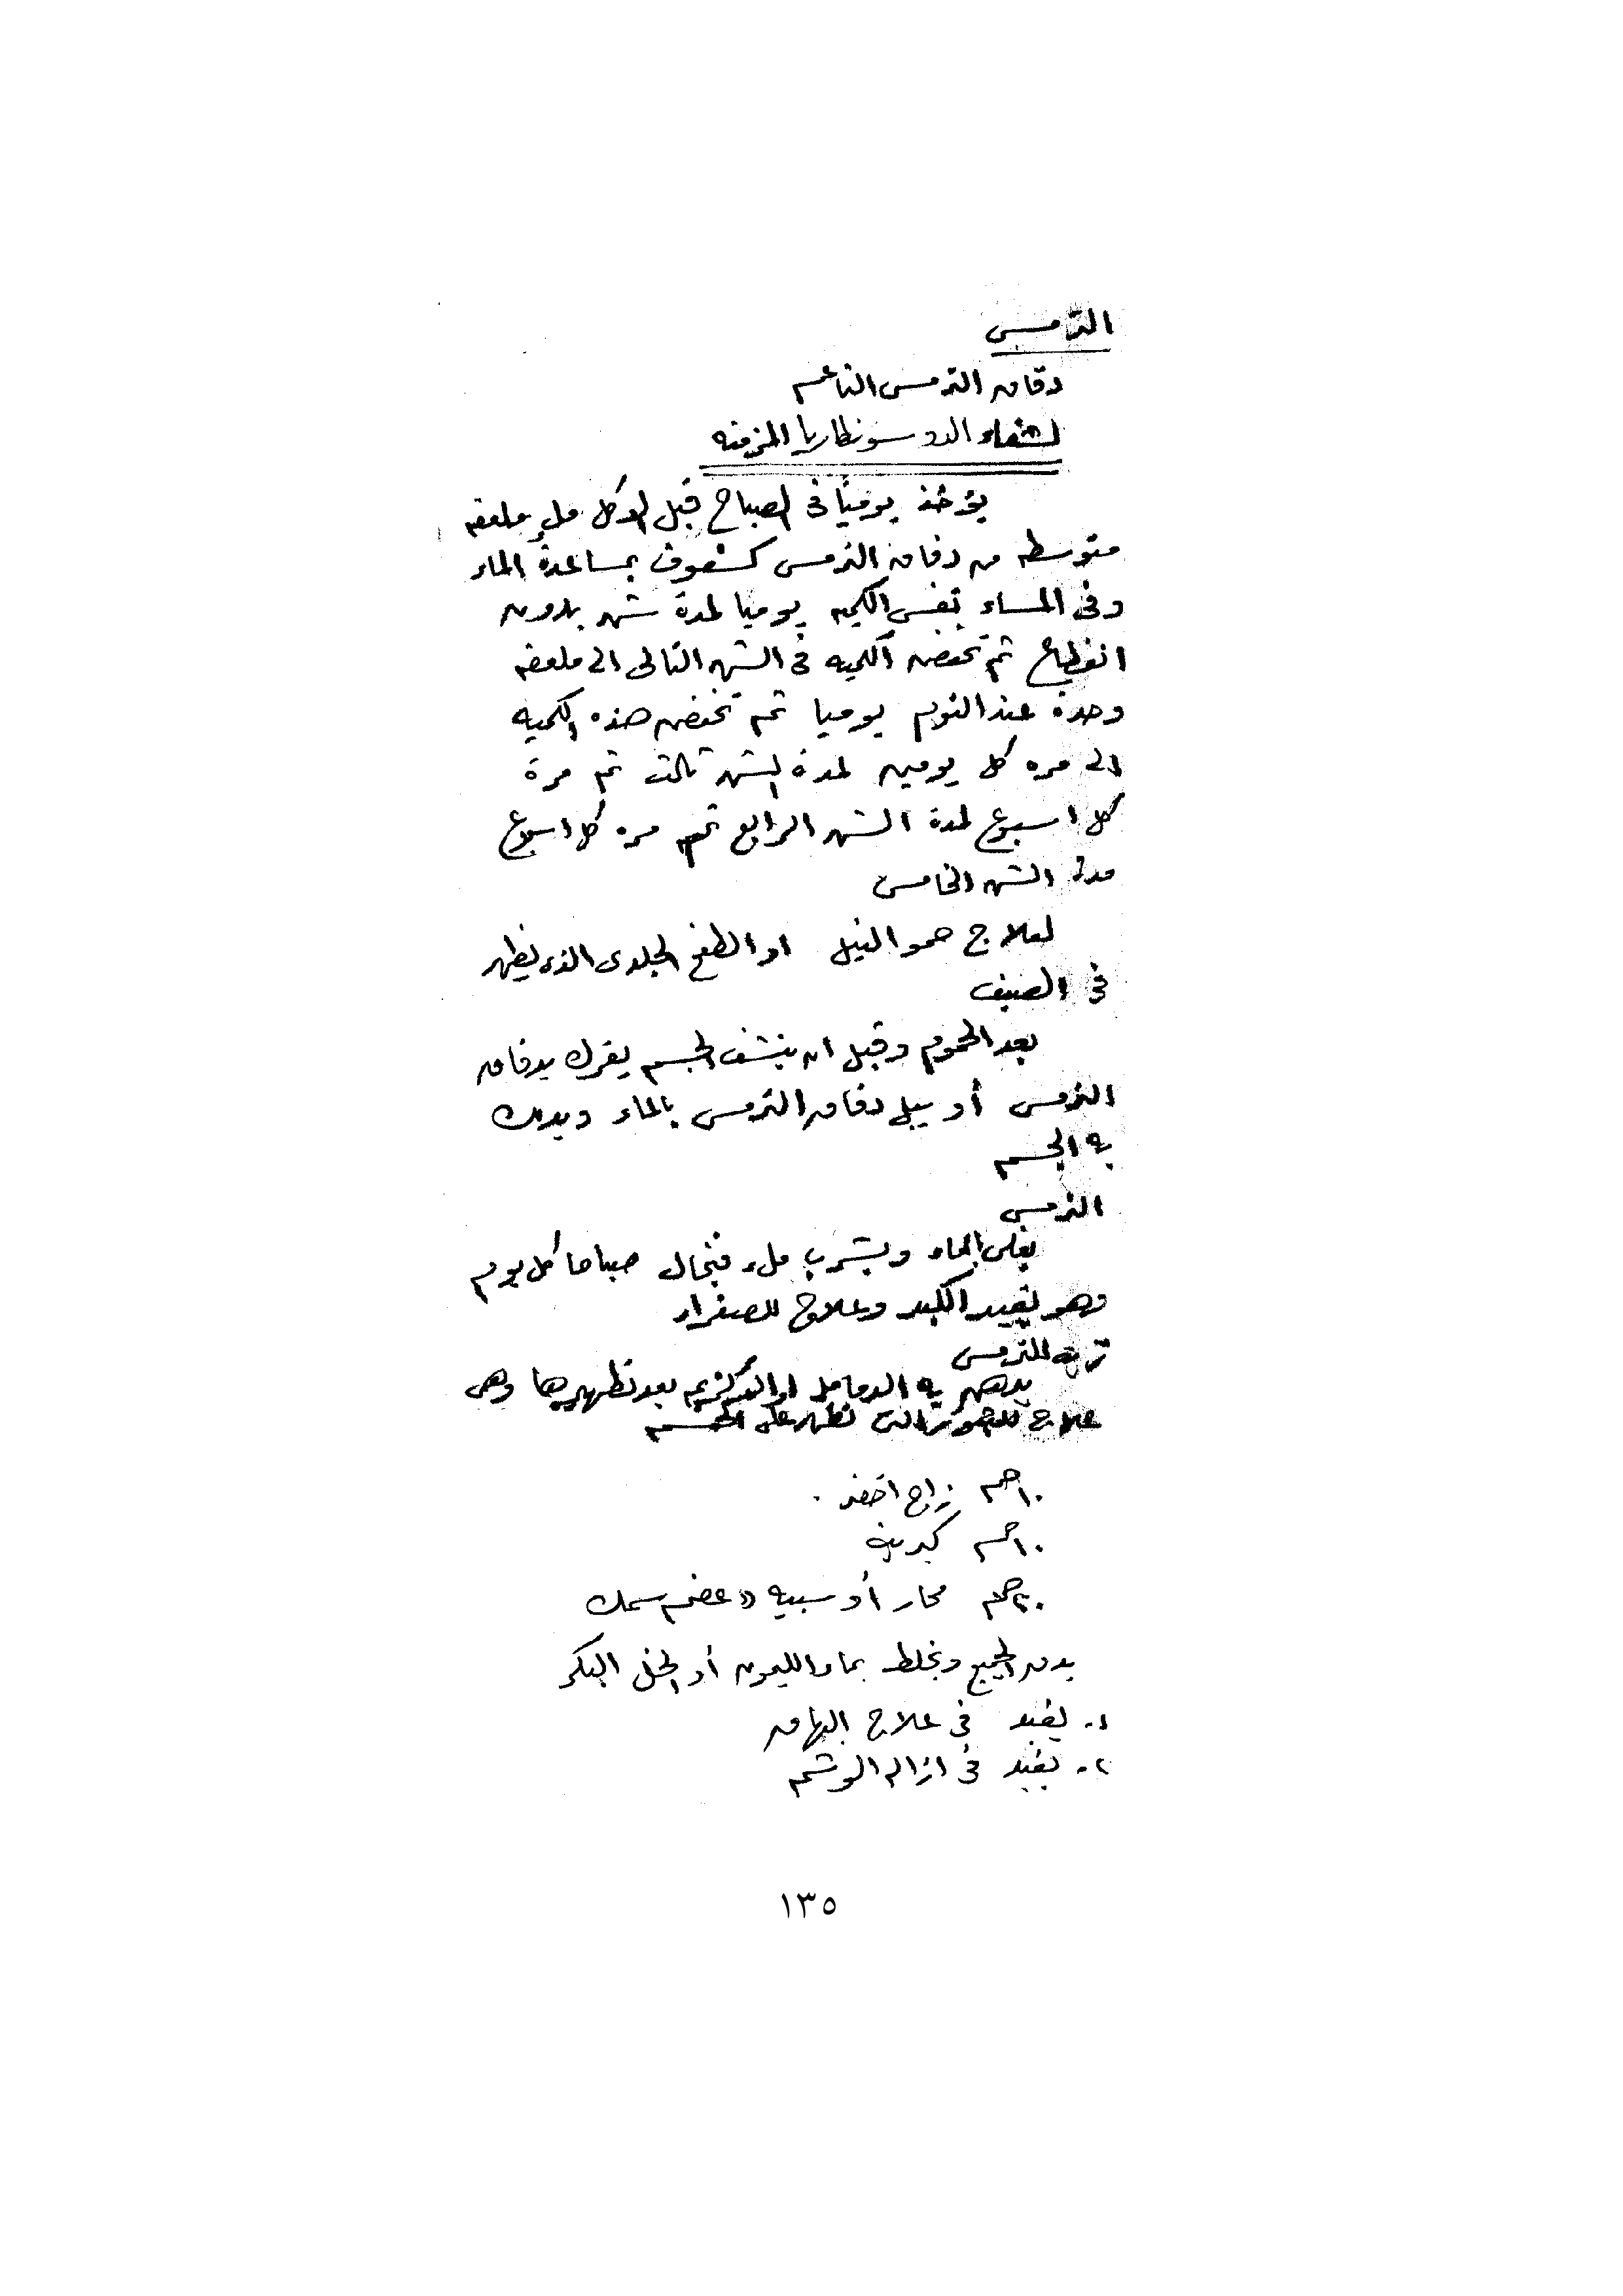 الترمس
دقاق الترمس الناعم
لشفاء الدوسونطاريا المزمنه
يؤخذ يوميًا فى الصباح قبل الاكل ملء ملعقه
متوسطه من دقاق الترمس كسفوف بمساعدة الماء
وفى المساء بنفس الكميه يوميا لمدة شهر بدون
انقطاع ثم تخفض الكميه فى الشهر التالى الى ملعقه
وحدة عند النوم يوميا ثم تخفض هذه الكميه
الى مره كل يومين لمدة الشهر تالت ثم مرة
كل اسبوع لمدة الشهر الرابع ثم مره كل اسبوع
مدة الشهر الخامس
لعلاج حمو النيل او الطفح الجلدى الذى يظهر
فى الصيف
بعد الحموم وقبل ان ينشف الجسم يفرك بدقاق
الترمس أو يبل دقاق الترمس بالماء ويدلك
به الجسم
الترمس
يغلى بالماء ويشرب ملء فنجال صباحا كل يوم
وهو يفيد الكبد وعلاج للصفراء
الترمس
يدهن به الدمامل او بعد تطهيرها وهى
علاج التى تظهر على الجسم
١٠ جم زاج اخضر .
١٠ جم كبريت
٢٠ جم محار أو سبيه (( عضم سمك
يدق الجميع ويخلط بماء الليمون أو الخل البكر
١- يفيد فى علاج البهاق
٢- يفيد فى ازالة الوشم
١٣٥